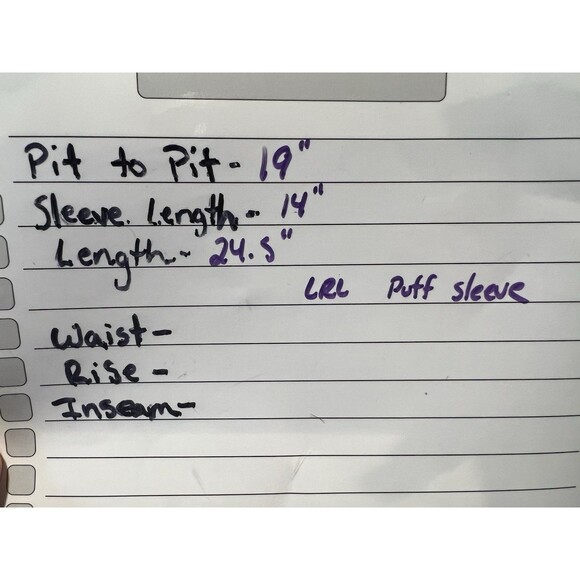 Pit to Pit - 19"
Sleeve Length - 14"
Length - 24.5"
LRL Puff sleeve
Waist -
Rise -
Inseam -